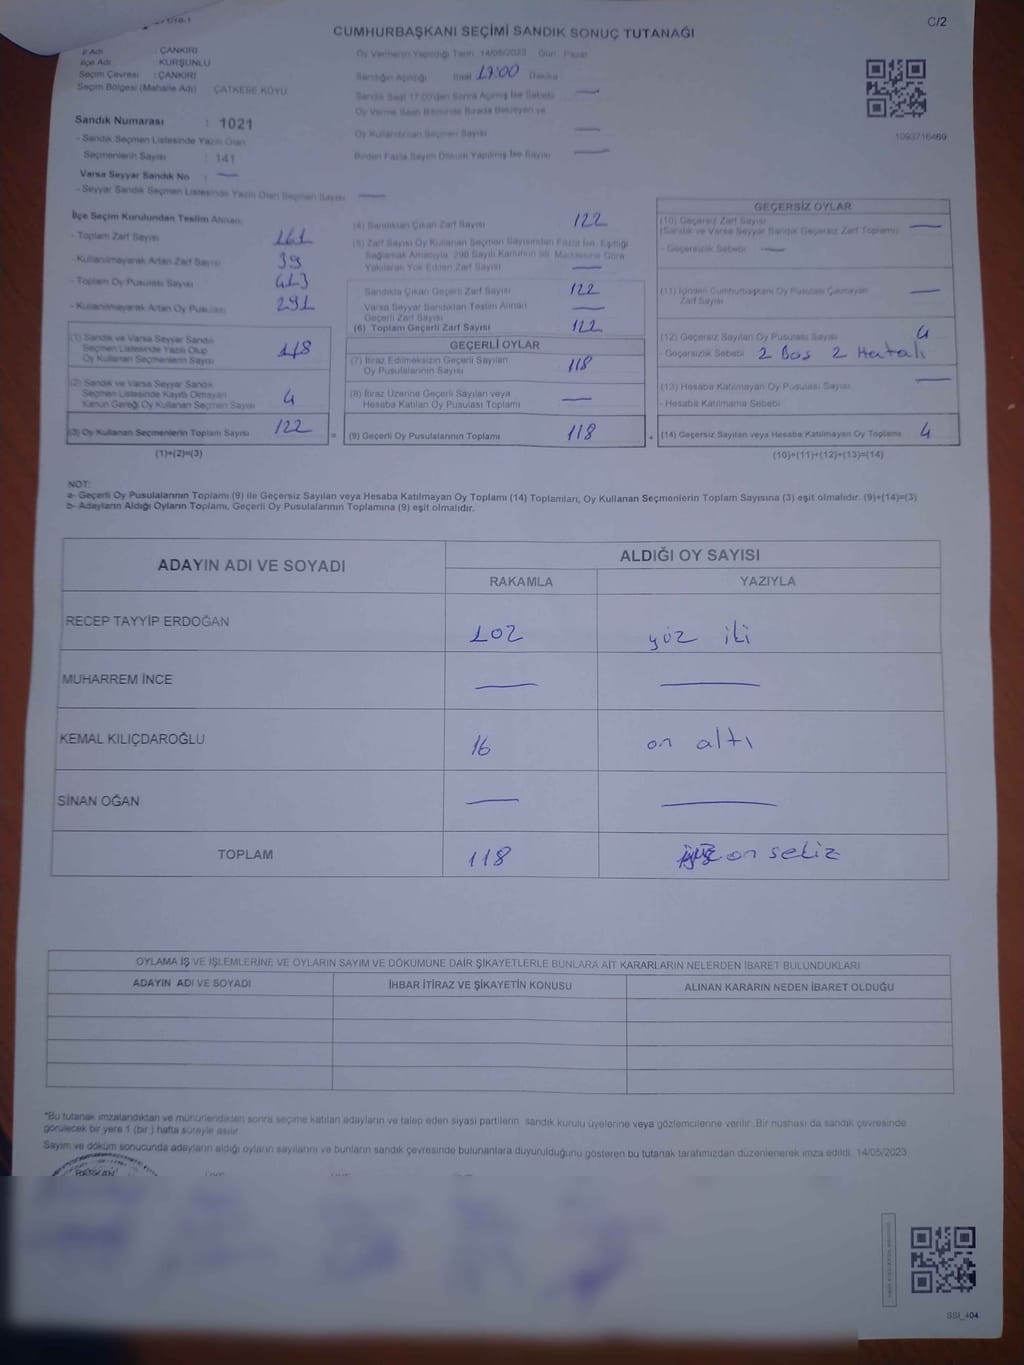 C/2
CUMHURBAŞKANI SEÇİMİ SANDIK SONUÇ TUTANAĞI
İl Adı : ÇANKIRI
İlçe Adı : KURŞUNLU
Seçim Çevresi : ÇANKIRI
Seçim Bölgesi (Mahalle Adı) ÇATKESE KÖYÜ
Oy Vermenin Yapıldığı Tarih : 14/05/2023 Gün : Pazar
Sandığın Açıldığı Saat 17:00 Dakika
Sandık Saat 17:00'den Sonra Açılmış İse Sebebi —
Oy Verme Saati Bitiminde Sırada Bekleyen ve
Oy Kullandırılan Seçmen Sayısı —
Birden Fazla Sayım Döküm Yapılmış İse Sayısı —
1093716469
Sandık Numarası : 1021
- Sandık Seçmen Listesinde Yazılı Olan
Seçmenlerin Sayısı : 141
Varsa Seyyar Sandık No : —
- Seyyar Sandık Seçmen Listesinde Yazılı Olan Seçmen Sayısı —
İlçe Seçim Kurulundan Teslim Alınan;
- Toplam Zarf Sayısı 161
- Kullanılmayarak Artan Zarf Sayısı 39
- Toplam Oy Pusulası Sayısı 413
- Kullanılmayarak Artan Oy Pusulası 291
(1) Sandık ve Varsa Seyyar Sandık
Seçmen Listesinde Yazılı Olup
Oy Kullanan Seçmenlerin Sayısı 118
(2) Sandık ve Varsa Seyyar Sandık
Seçmen Listesinde Kayıtlı Olmayan
Kanun Gereği Oy Kullanan Seçmen Sayısı 4
(3) Oy Kullanan Seçmenlerin Toplam Sayısı 122
(1)+(2)=(3)
(4) Sandıktan Çıkan Zarf Sayısı 122
(5) Zarf Sayısı Oy Kullanan Seçmen Sayısından Fazla İse, Eşitliği
Sağlamak Amacıyla, 298 Sayılı Kanunun 98. Maddesine Göre
Yakılarak Yok Edilen Zarf Sayısı —
Sandıkta Çıkan Geçerli Zarf Sayısı 122
Varsa Seyyar Sandıktan Teslim Alınan
Geçerli Zarf Sayısı —
(6) Toplam Geçerli Zarf Sayısı 122
GEÇERLİ OYLAR
(7) İtiraz Edilmeksizin Geçerli Sayılan
Oy Pusulalarının Sayısı 118
(8) İtiraz Üzerine Geçerli Sayılan veya
Hesaba Katılan Oy Pusulası Toplamı —
= (9) Geçerli Oy Pusulalarının Toplamı 118
GEÇERSİZ OYLAR
(10) Geçersiz Zarf Sayısı
(Sandık ve Varsa Seyyar Sandık Geçersiz Zarf Toplamı) —
- Geçersizlik Sebebi —
(11) İçinden Cumhurbaşkanı Oy Pusulası Çıkmayan
Zarf Sayısı —
(12) Geçersiz Sayılan Oy Pusulası Sayısı 4
- Geçersizlik Sebebi 2 Bos 2 Hatalı
(13) Hesaba Katılmayan Oy Pusulası Sayısı —
- Hesaba Katılmama Sebebi
+ (14) Geçersiz Sayılan veya Hesaba Katılmayan Oy Toplamı 4
(10)+(11)+(12)+(13)=(14)
NOT:
a- Geçerli Oy Pusulalarının Toplamı (9) ile Geçersiz Sayılan veya Hesaba Katılmayan Oy Toplamı (14) Toplamları, Oy Kullanan Seçmenlerin Toplam Sayısına (3) eşit olmalıdır. (9)+(14)=(3)
b- Adayların Aldığı Oyların Toplamı, Geçerli Oy Pusulalarının Toplamına (9) eşit olmalıdır.
ADAYIN ADI VE SOYADI ALDIĞI OY SAYISI
RAKAMLA YAZIYLA
RECEP TAYYİP ERDOĞAN 102 yüz iki
MUHARREM İNCE — —
KEMAL KILIÇDAROĞLU 16 on altı
SİNAN OĞAN — —
TOPLAM 118 yüz on sekiz
OYLAMA İŞ VE İŞLEMLERİNE VE OYLARIN SAYIM VE DÖKÜMÜNE DAİR ŞİKAYETLERLE BUNLARA AİT KARARLARIN NELERDEN İBARET BULUNDUKLARI
ADAYIN ADI VE SOYADI İHBAR İTİRAZ VE ŞİKAYETİN KONUSU ALINAN KARARIN NEDEN İBARET OLDUĞU
*Bu tutanak imzalandıktan ve mühürlendikten sonra seçime katılan adayların ve talep eden siyasi partilerin sandık kurulu üyelerine veya gözlemcilerine verilir. Bir nüshası da sandık çevresinde
görülecek bir yere 1 (bir) hafta süreyle asılır.
Sayım ve döküm sonucunda adayların aldığı oyların sayılarını ve bunların sandık çevresinde bulunanlara duyurulduğunu gösteren bu tutanak tarafımızdan düzenlenerek imza edildi. 14/05/2023
BAŞKAN
SSI_404